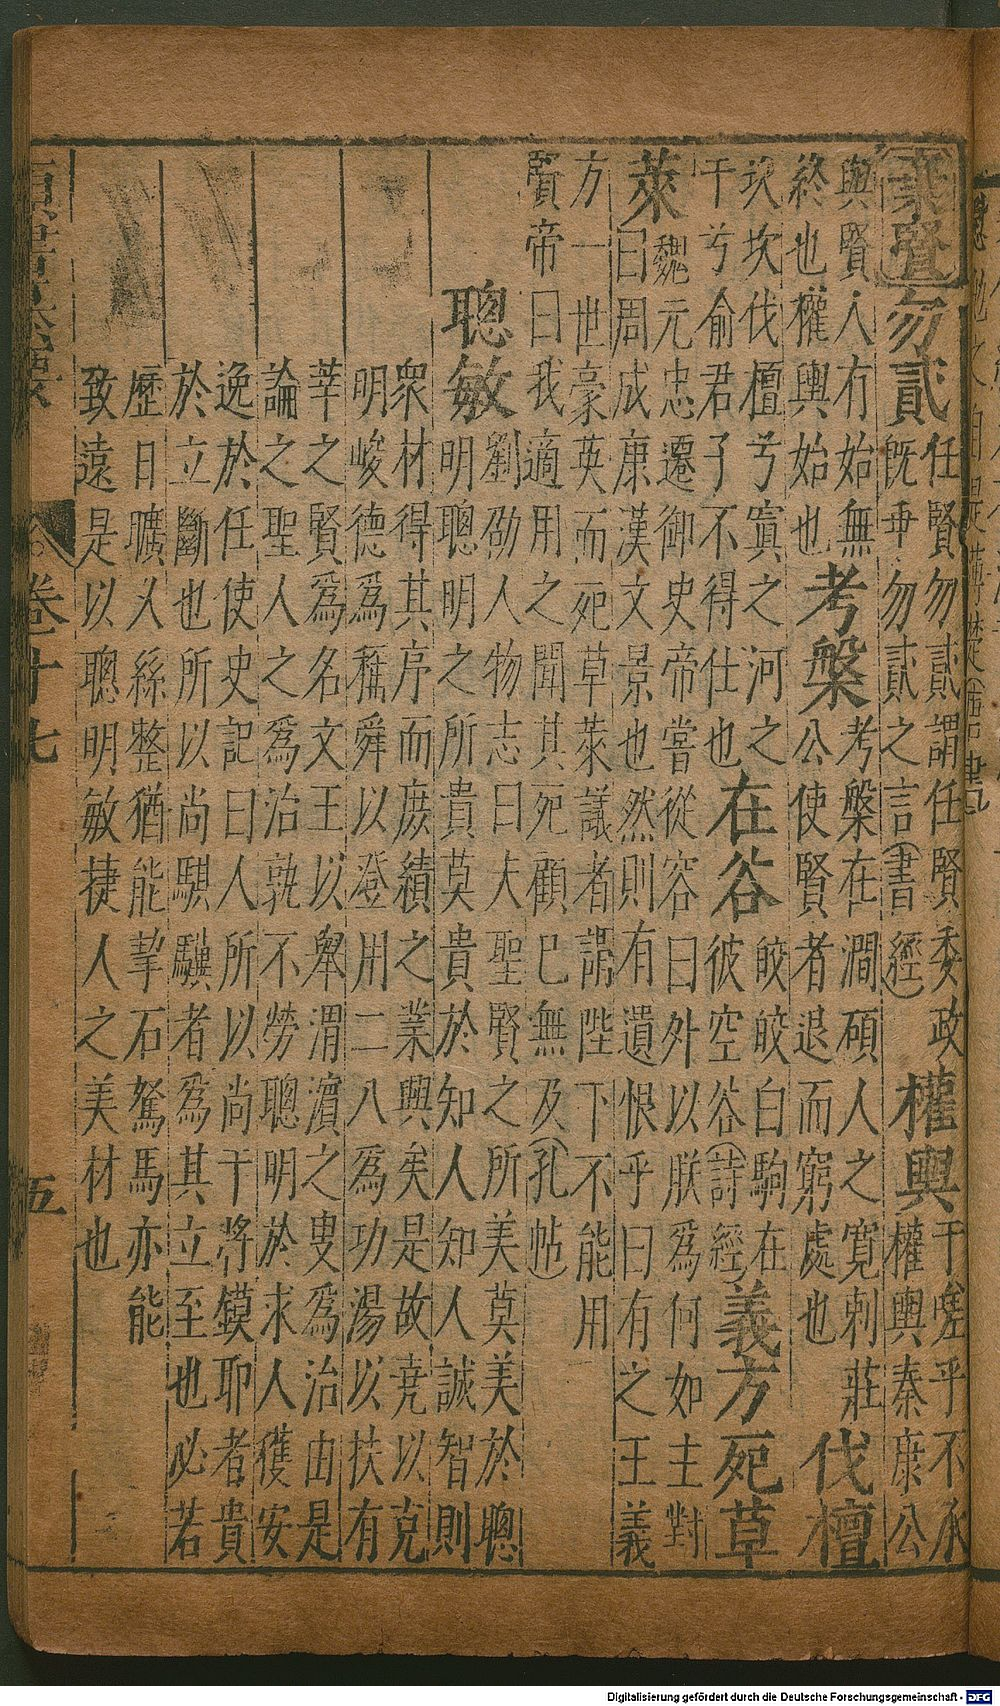 棄賢
勿貳
任賢勿貳謂任賢委政
既重勿貳之言(書經)
權輿
于嗟乎不承
權輿秦康公
與賢人有始無
終也權輿始也
考槃
考槃在澗碩人之寬刺莊
公使賢者退而窮處也
伐檀
坎坎伐檀兮寘之河之
干兮俞君子不得仕也
在谷
皎皎白駒在
彼空谷(詩經)
義方死草
萊
魏元忠遷御史帝嘗從容曰外以朕爲何如主對
曰周成康漢文景也然則有遺恨乎曰有之王義
方一世豪英而死草萊議者謂陛下不能用
賢帝曰我適用之聞其死顧已無及(孔帖)
聰敏
劉劭人物志曰夫聖賢之所美莫美於聰
明聰明之所貴莫貴於知人知人誠智則
衆材得其序而庶績之業興矣是故堯以克
明峻德爲稱舜以登用二八爲功湯以扶有
莘之賢爲名文王以舉渭濱之叟爲治由是
論之聖人之爲治孰不勞聰明於求人獲安
逸於任使史記曰人所以尚干將鏌耶者貴
於立斷也所以尚騏驥者爲其立至也必若
歷日曠久絲整猶能挈石駑馬亦能
致遠是以聰明敏捷人之美材也
卷十七
五
Digitalisierung gefördert durch die Deutsche Forschungsgemeinschaft - DFG